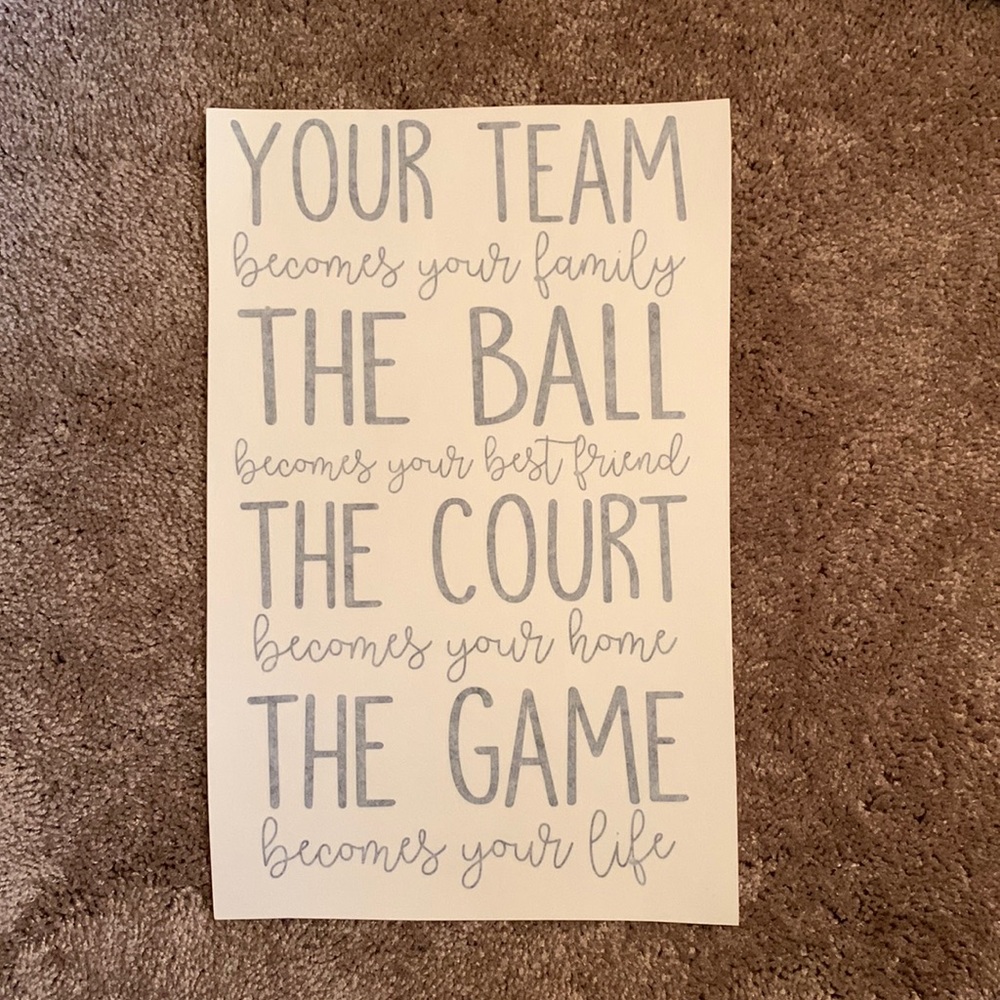 YOUR TEAM
becomes your family
THE BALL
becomes your best friend
THE COURT
becomes your home
THE GAME
becomes your life